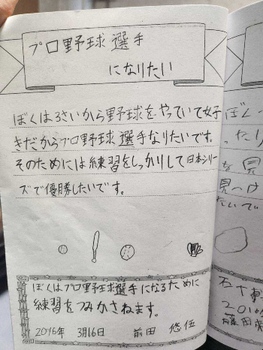 プロ野球選手
になりたい
ぼくは3さいから野球をやっていて女子
きだからプロ野球選手なりたいです。
そのためには練習をしっかりして日本シリー
ズで優勝したいです。
ぼくはプロ野球選手になるために
練習をつみかさねます。
2016年 3月16日 前田 悠伍